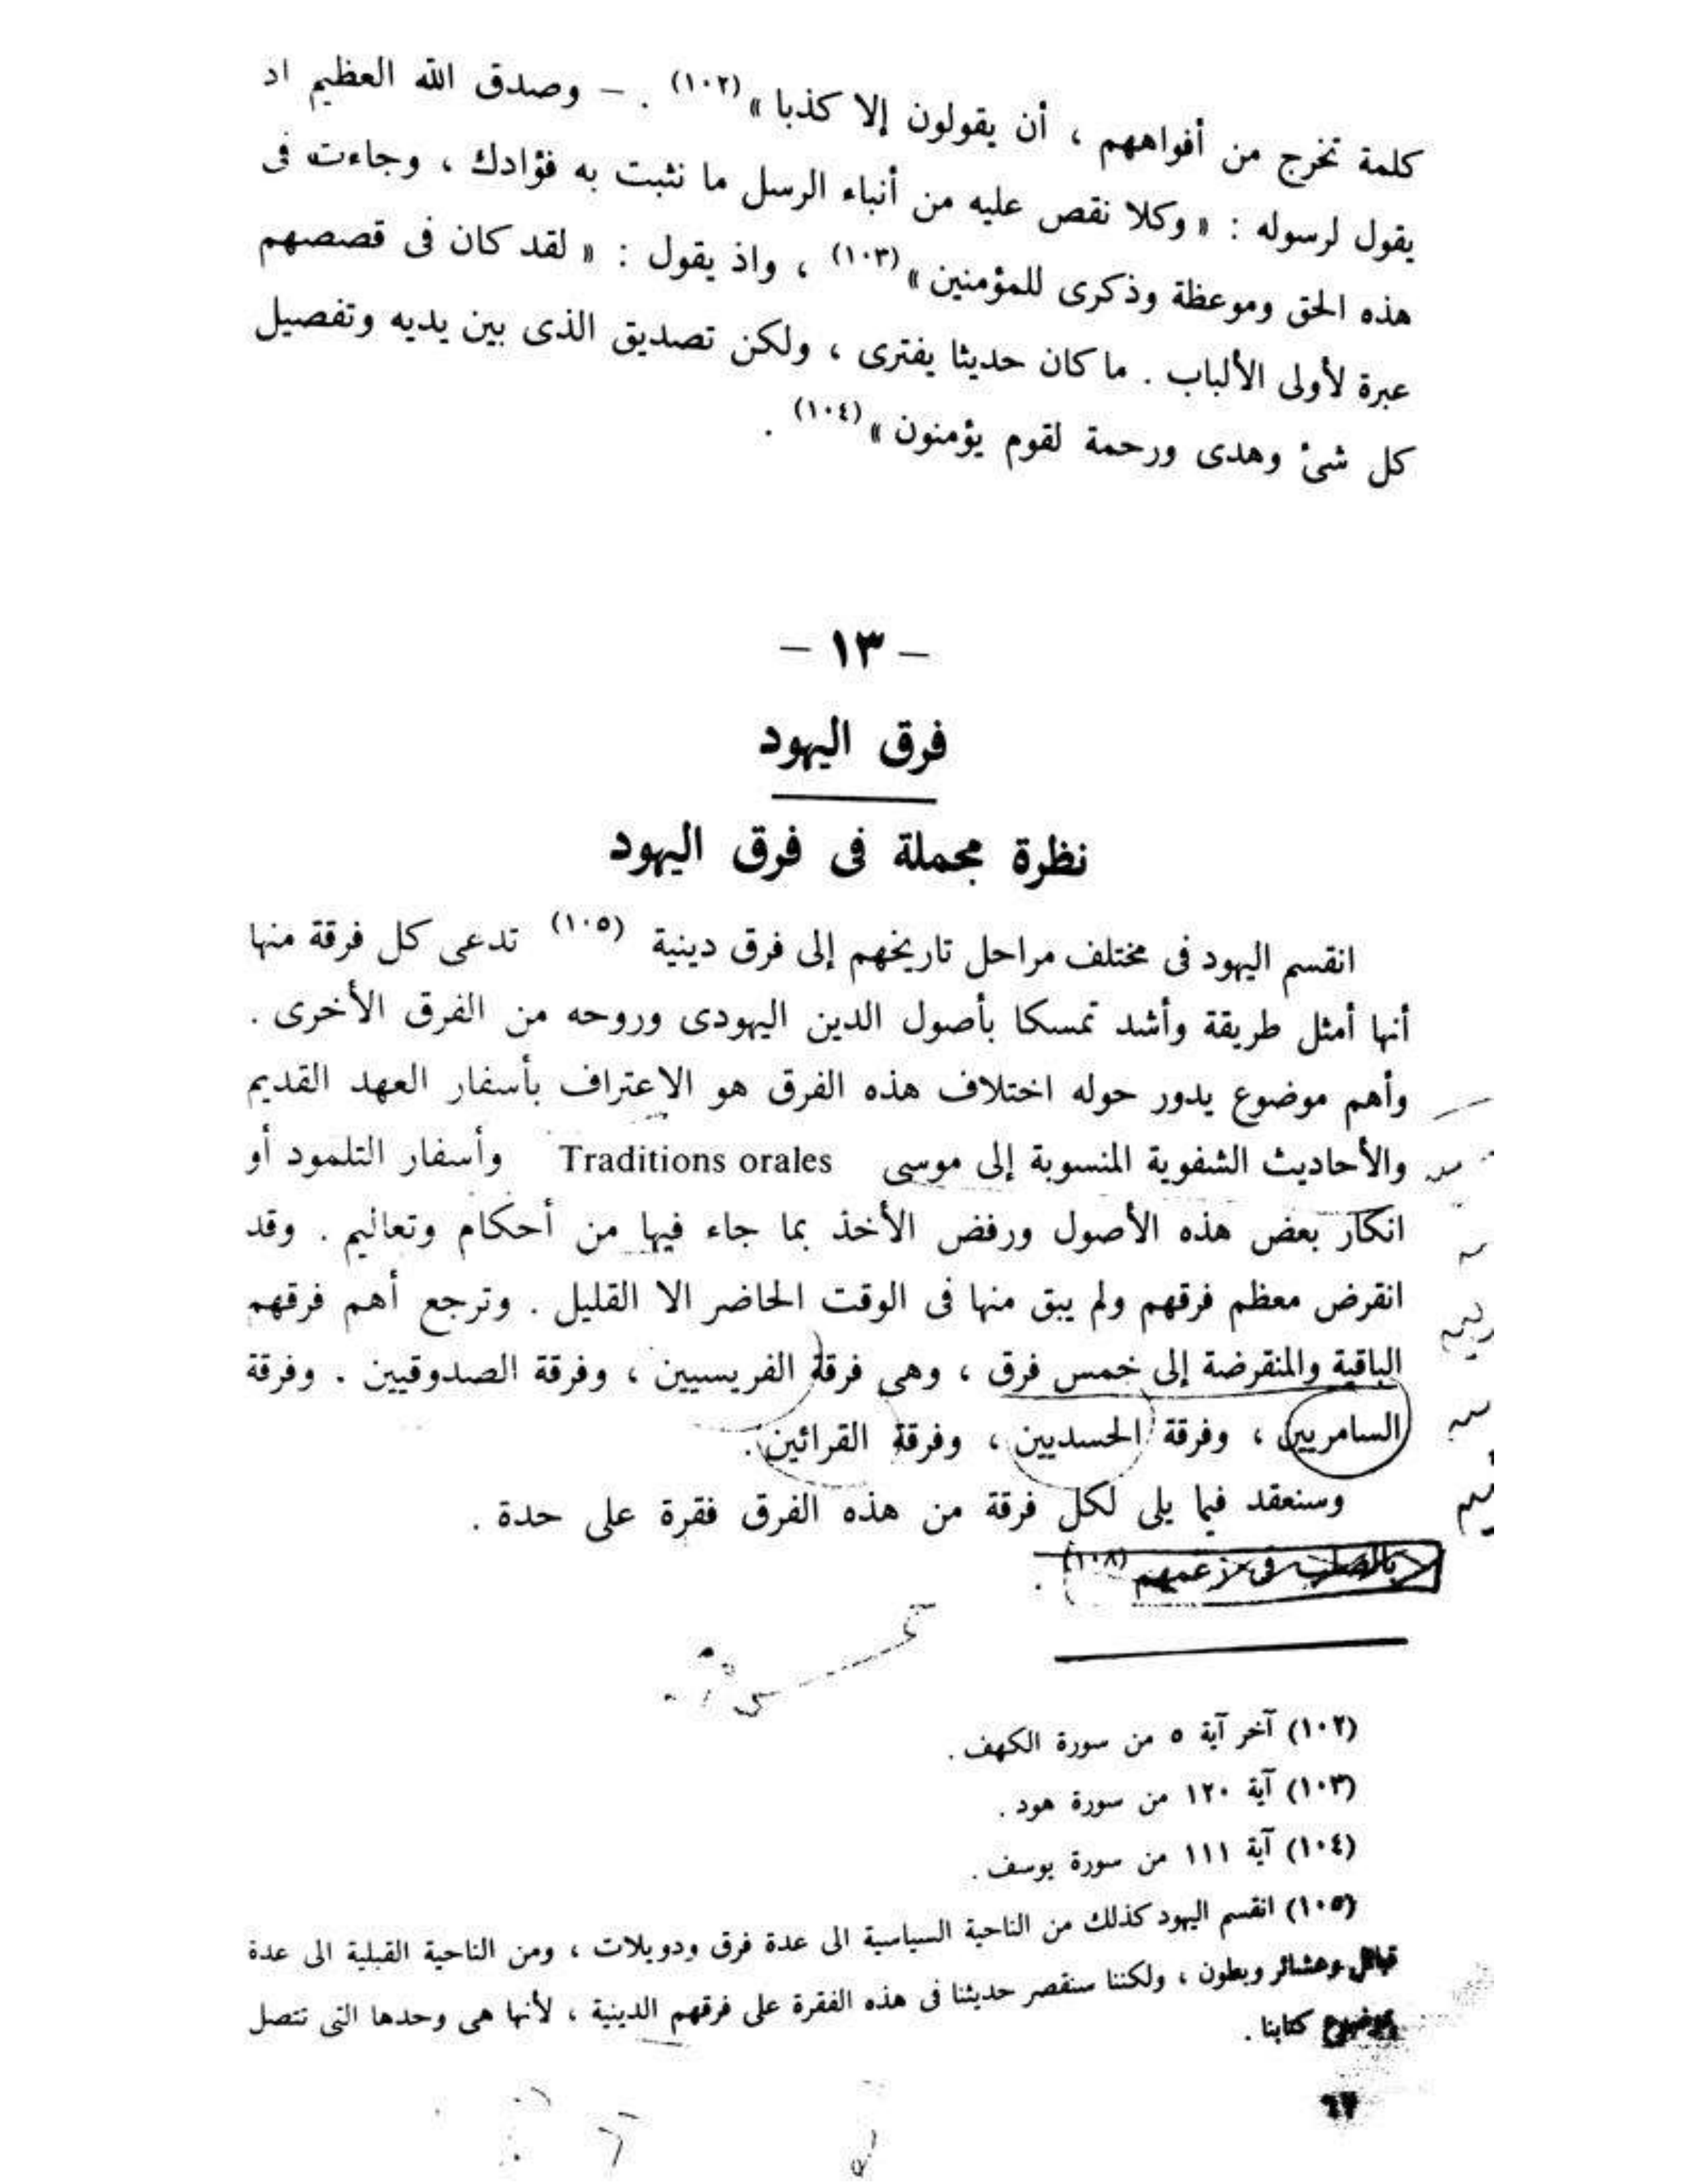 كلمة تخرج من أفواههم ، أن يقولون إلا كذبا » (١٠٢) . – وصدق الله العظيم اد
يقول لرسوله : « وكلا نقص عليه من أنباء الرسل ما نثبت به فؤادك ، وجاءت فى
هذه الحق وموعظة وذكرى للمؤمنين » (١٠٣) ، واذ يقول : « لقد كان فى قصصهم
عبرة لأولى الألباب . ما كان حديثا يفترى ، ولكن تصديق الذى بين يديه وتفصيل
كل شىٔ وهدى ورحمة لقوم يؤمنون » (١٠٤) .
– ١٣ –
فرق اليهود
نظرة مجملة فى فرق اليهود
انقسم اليهود فى مختلف مراحل تاريخهم إلى فرق دينية (١٠٥) تدعى كل فرقة منها
أنها أمثل طريقة وأشد تمسكا بأصول الدين اليهودى وروحه من الفرق الأخرى .
وأهم موضوع يدور حوله اختلاف هذه الفرق هو الاعتراف بأسفار العهد القديم
والأحاديث الشفوية المنسوبة إلى موسى Traditions orales وأسفار التلمود أو
انكار بعض هذه الأصول ورفض الأخذ بما جاء فيها من أحكام وتعاليم . وقد
انقرض معظم فرقهم ولم يبق منها فى الوقت الحاضر الا القليل . وترجع أهم فرقهم
الباقية والمنقرضة إلى خمس فرق ، وهى فرقة الفريسيين ، وفرقة الصدوقيين . وفرقة
السامريين ، وفرقة الحسديين ، وفرقة القرائين .
وسنعقد فيما يلى لكل فرقة من هذه الفرق فقرة على حدة .
بالصلب فى زعمهم (١٠٨) .
(١٠٢) آخر آية ٥ من سورة الكهف .
(١٠٣) آية ١٢٠ من سورة هود .
(١٠٤) آية ١١١ من سورة يوسف .
(١٠٥) انقسم اليهود كذلك من الناحية السياسية الى عدة فرق ودويلات ، ومن الناحية القبلية الى عدة
قبائل وعشائر وبطون ، ولكننا سنقصر حديثنا فى هذه الفقرة على فرقهم الدينية ، لأنها هى وحدها التى تتصل
بموضوع كتابنا .